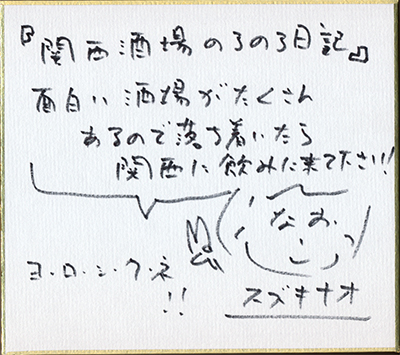 『関西酒場のろのろ日記』
面白い酒場がたくさん
あるので落ち着いたら
関西に飲みに来て下さい!!
なお
ヨ・ロ・シ・ク・ネ
!!
スズキナオ